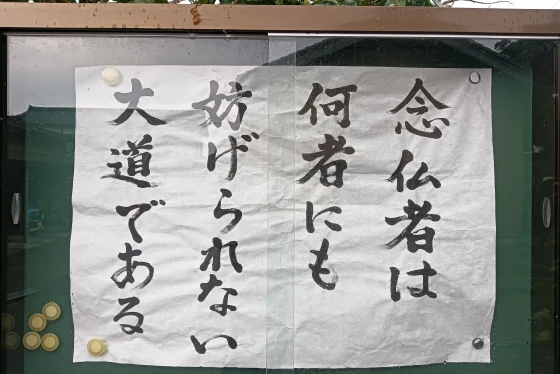 念仏者は
何者にも
妨げられない
大道である